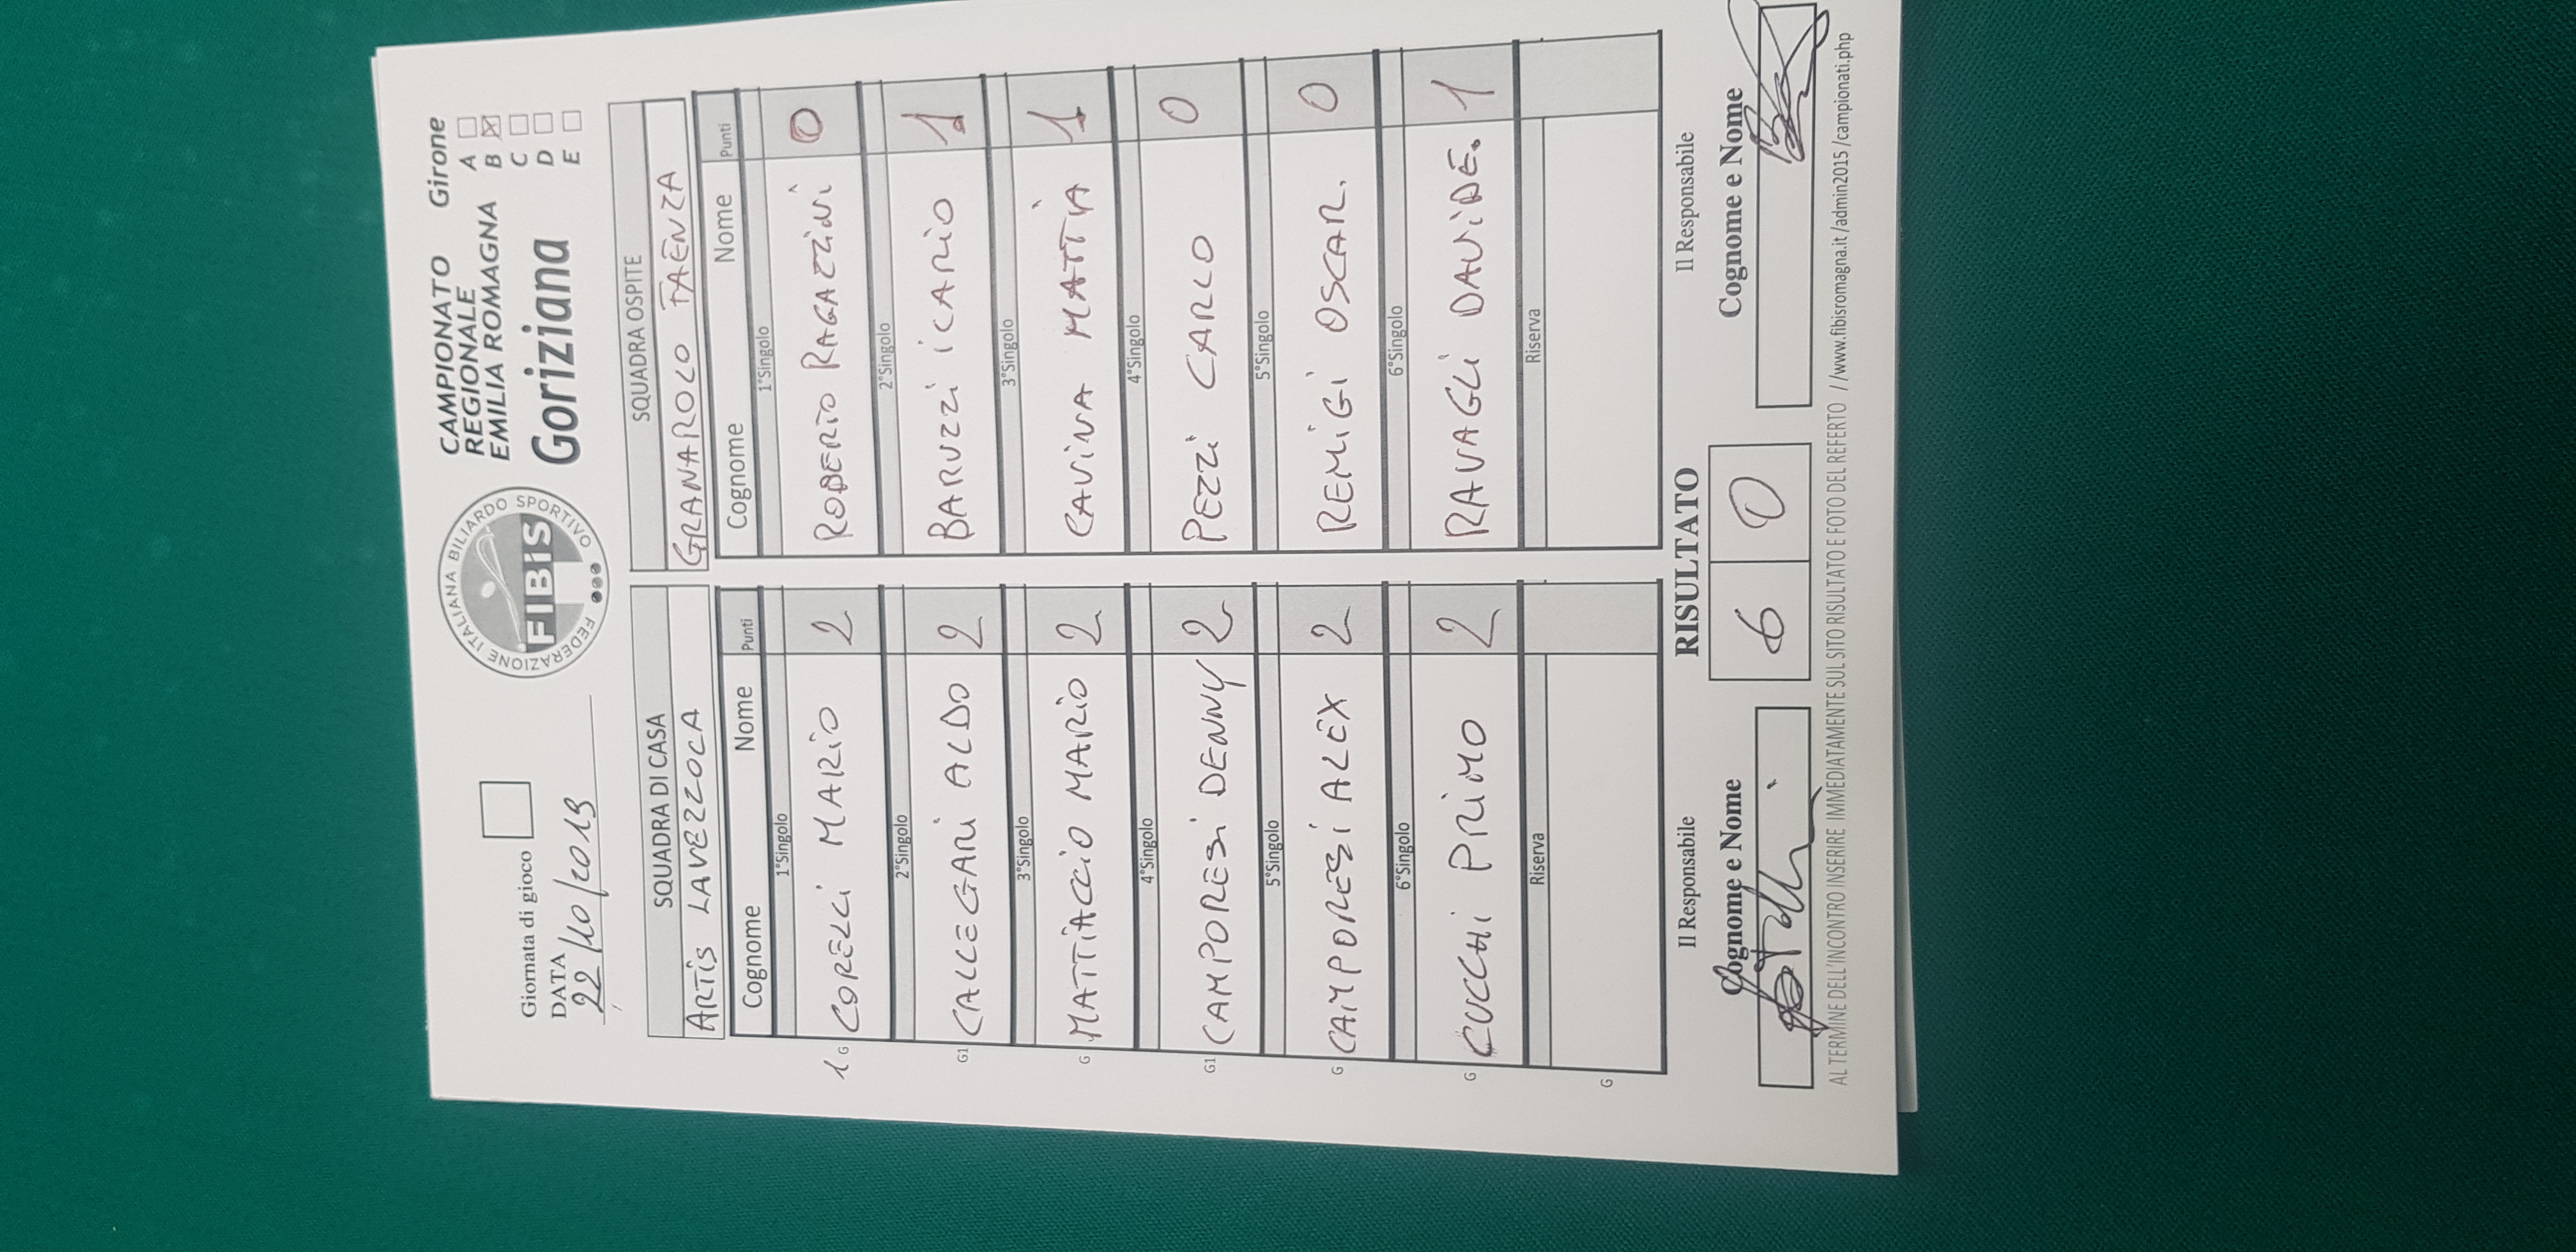 Giornata di gioco
DATA
22/10/2019
FEDERAZIONE ITALIANA BILIARDO SPORTIVO
FIBiS
CAMPIONATO
REGIONALE
EMILIA ROMAGNA
Goriziana
Girone
A
B X
C
D
E
SQUADRA DI CASA
ARTIS LAVEZZOLA
Cognome Nome Punti
1°Singolo
1 G CORELLI MARIO 2
2°Singolo
G1 CALLEGARI ALDO 2
3°Singolo
G MATTIACCIO MARIO 2
4°Singolo
G1 CAMPORESI DENNY 2
5°Singolo
G CAMPORESI ALEX 2
6°Singolo
G CUCCHI PRIMO 2
Riserva
G
SQUADRA OSPITE
GRANAROLO FAENZA
Cognome Nome Punti
1°Singolo
ROBERTO RAGAZZINI 0
2°Singolo
BARUZZI ICARIO 1
3°Singolo
CAVINA MATTIA 1
4°Singolo
PEZZI CARLO 0
5°Singolo
REMIGI OSCAR. 0
6°Singolo
RAVAGLI DAVIDE. 1
Riserva
Il Responsabile
Cognome e Nome
RISULTATO
6 0
Il Responsabile
Cognome e Nome
AL TERMINE DELL'INCONTRO INSERIRE IMMEDIATAMENTE SUL SITO RISULTATO E FOTO DEL REFERTO //www.fibisromagna.it/admin2015/campionati.php